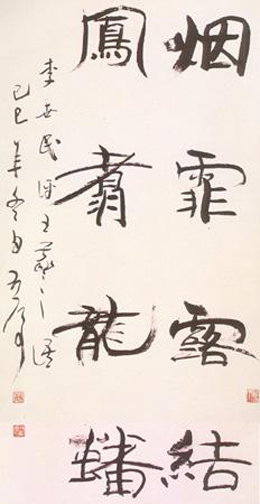 烟霏露結
鳳翥龍蟠
李世民評王羲之語
己巳年冬